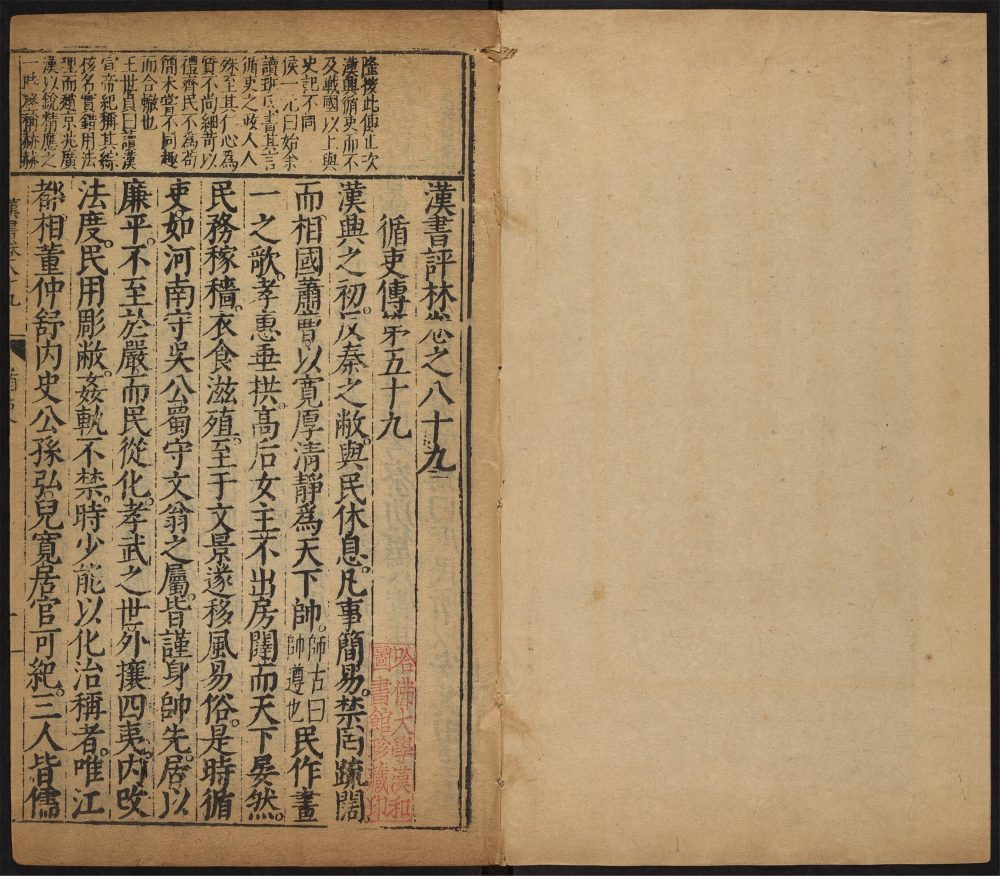 漢書評林卷之八十九
循吏傳第五十九
漢興之初。反秦之敝。與民休息。凡事簡易。禁罔疏闊。
而相國蕭曹以寬厚清靜爲天下帥。師古曰帥遵也民作畫
一之歌。孝惠垂拱。高后女主不出房闥。而天下晏然。
民務稼穡。衣食滋殖。至于文景遂移風易俗。是時循
吏如河南守吳公蜀守文翁之屬。皆謹身帥先。居以
廉平。不至於嚴。而民從化。孝武之世。外攘四夷。内改
法度。民用彫敝。姦軌不禁。時少能以化治稱者。唯江
都相董仲舒内史公孫弘兒寬居官可紀。三人皆儒
隆按此傳止次
漢興循吏而不
及戰國以上與
史記不同
侯一元曰始余
讀班氏書其言
循吏之政人人
殊至其仁心為
質不尚細苛以
禮齊民不為苟
簡未嘗不同趣
而合轍也
王世貞曰讀漢
宣帝紀稱其綜
核名實錯用法
理而趙京兆廣
漢以銳精應之
一時
哈佛大學漢和
圖書館珍藏印
漢書卷八十九